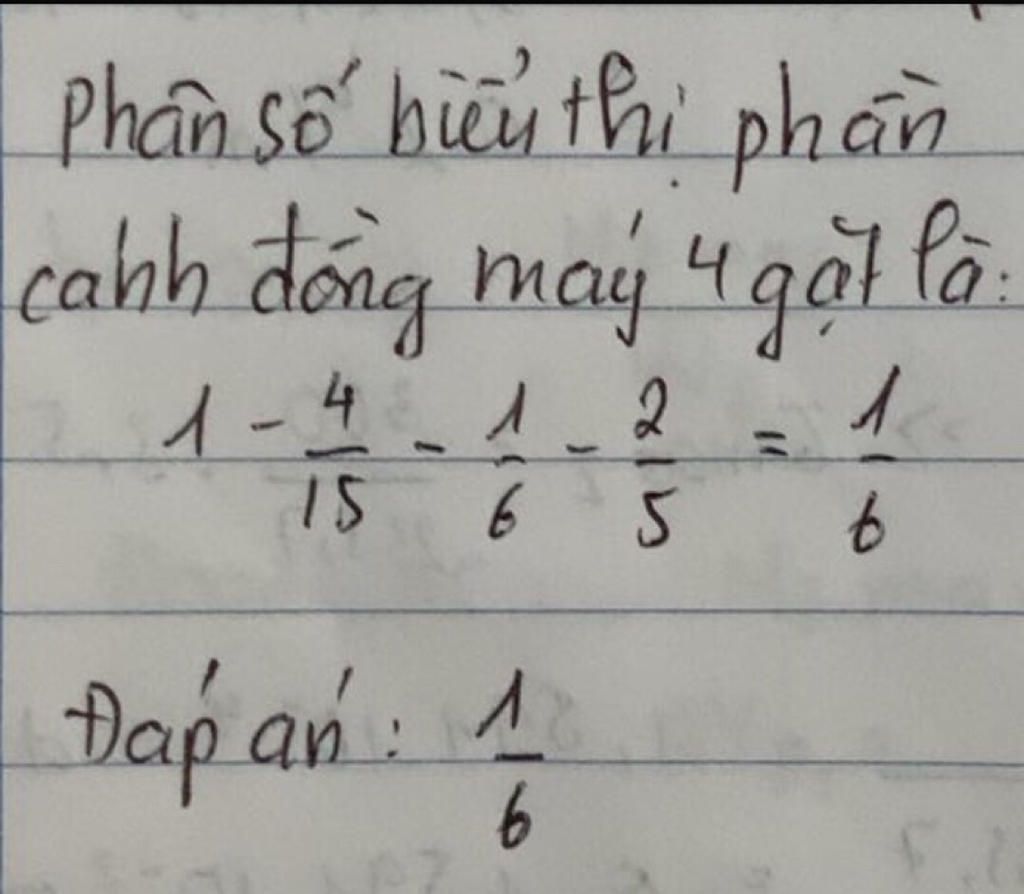 Phân số biểu thị phần
cánh đồng máy 4 gặt là:
1 - 4/15 - 1/6 - 2/5 = 1/6
Đáp án: 1/6